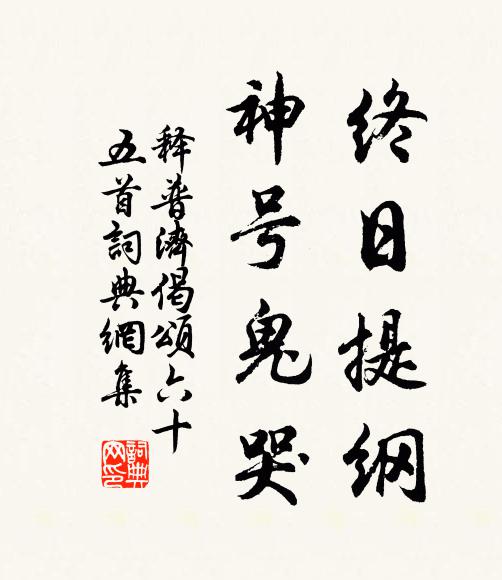 终日提纲
神号鬼哭
释普濟偈頌六十
五首詞典網集
詞典
网印